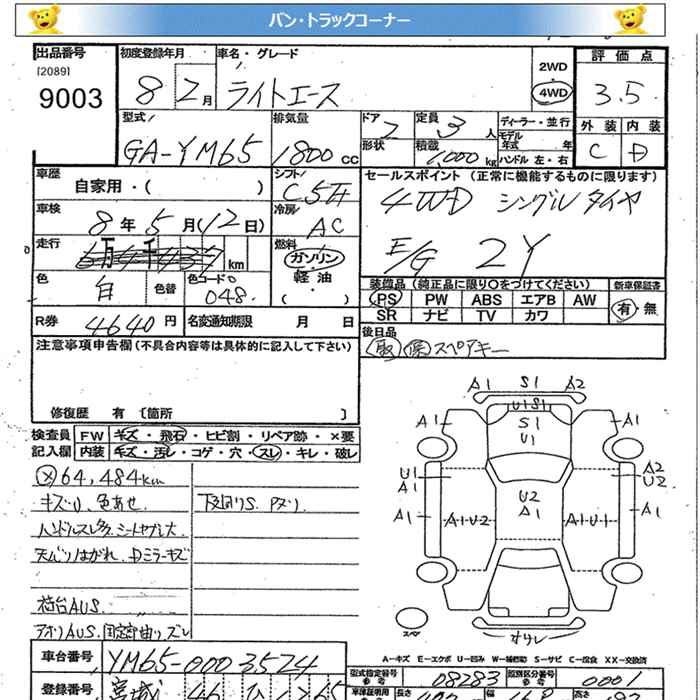 バン・トラックコーナー
出品番号 初度登録年月 車名・グレード 2WD 評価点
[2089]
9003 8 2月 ライトエース 4WD 3.5
外装 内装
C D
型式 排気量 ドア 定員 ディーラー・並行
GA-YM65 1800cc 2 3人 モデル年式 年
形状 積載 1,000kg ハンドル 左・右
車歴 シフト セールスポイント (正常に機能するものに限ります)
自家用・( ) C5F 4WD シングルタイヤ
車検 冷房
8年5月(12日) AC E/G 2Y
走行 万 千 km 燃料
ガソリン
軽油
( )
色 色替 色コード
白 048
装備品(純正品に限り〇をつけてください) 新車保証書
PS PW ABS エアB AW 有・無
SR ナビ TV カワ
R券 4640円 名変通知期限 月 日
後日品
取 保 スペアキー
注意事項申告欄(不具合内容等は具体的に記入して下さい)
修復歴 有 〔箇所 〕
検査員 FW キズ・飛石・ヒビ割・リペア跡・×要
記入欄 内装 キズ・汚レ・コゲ・穴・スレ・キレ・破レ
64,484km
キズU、色あせ 下回りS.
ハンドルスレ
天バリハガれ、Dミラーキズ
荷台AUS
アオリAUS
A1 S1 A2
U1S1
S1
U1
A1 A1
U1
A1
A2
U2
A1 A1
U2
A1
A1U2 A1U1
スペア
A-キズ E-エクボ U-凹み W-補修跡 S-サビ C-腐食 X-要交換 XX-交換済
車台番号 YM65-0003524
型式指定番号 08283 類別区分番号 0001
登録番号 宮城 46
長さ 幅 高さ